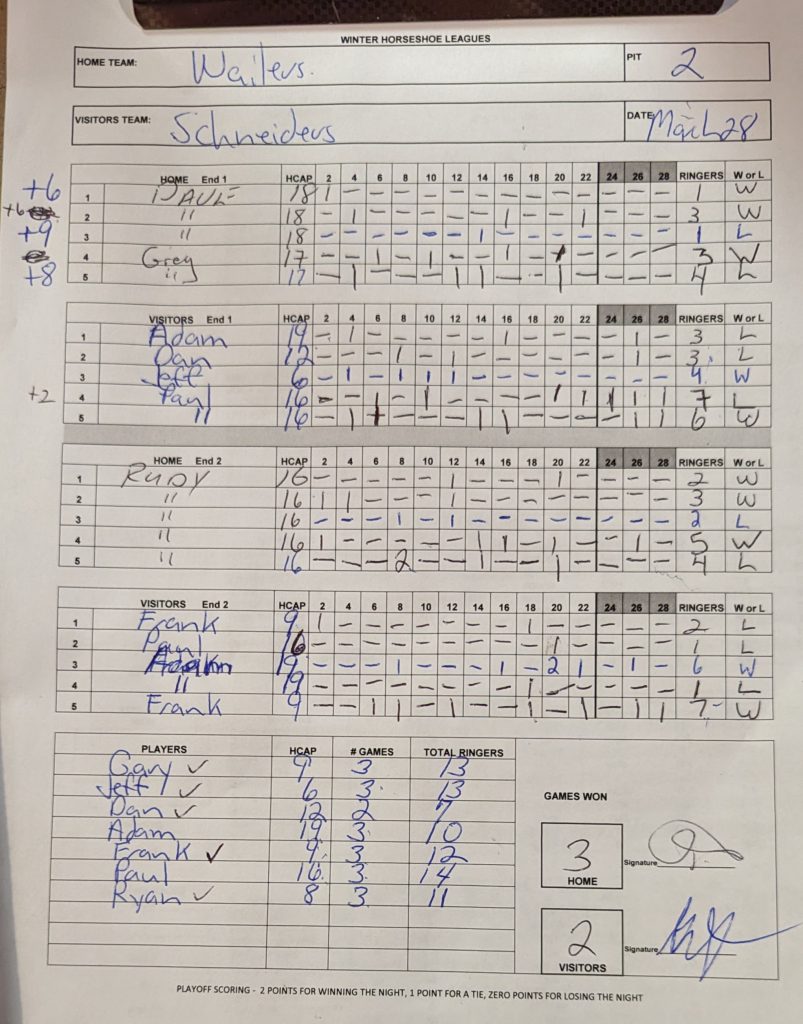 WINTER HORSESHOE LEAGUES
HOME TEAM: Wailers. PIT 2
VISITORS TEAM: Schneiders DATE: March 28
HOME End 1 HCAP 2 4 6 8 10 12 14 16 18 20 22 24 26 28 RINGERS W or L
+6 1 DAVE 18 1 - - - - - - - - - - - - - 1 W
+6 2 " 18 - 1 - - - - - 1 - - 1 - - - 3 W
+9 3 " 18 - - - - - - 1 - - - - - - - 1 L
4 Greg 17 - - 1 - 1 - - 1 - - - - - 3 W
+8 5 " 17 - 1 - - - 1 1 - - 1 - - - - 4 L
VISITORS End 1 HCAP 2 4 6 8 10 12 14 16 18 20 22 24 26 28 RINGERS W or L
1 Adam 19 - 1 - - - - - 1 - - - - 1 - 3 L
2 Dan 12 - - - 1 - 1 - - - - - - 1 - 3 L
3 Jeff 6 - 1 - 1 1 1 - - - - - - - - 4 W
+2 4 Paul 16 - - 1 - 1 - - - - 1 1 1 1 1 7 L
5 " 16 - 1 - - - 1 1 - - - - 1 1 6 W
HOME End 2 HCAP 2 4 6 8 10 12 14 16 18 20 22 24 26 28 RINGERS W or L
1 RUDY 16 - - - - - 1 - - - 1 - - - - 2 W
2 " 16 1 1 - - - - 1 - - - - - - - 3 W
3 " 16 - - - 1 - 1 - - - - - - - - 2 L
4 " 16 1 - - - - - 1 1 - 1 - - 1 - 5 W
5 " 16 - - - 2 - - 1 - - 1 - - - - 4 L
VISITORS End 2 HCAP 2 4 6 8 10 12 14 16 18 20 22 24 26 28 RINGERS W or L
1 Frank 9 1 - - - - - - - 1 - - - - - 2 L
2 Paul 16 - - - - - - - - - 1 - - - - 1 L
3 Adam 19 - - - 1 - - - 1 - 2 1 - 1 - 6 W
4 " 19 - - - - - - - - 1 - - - - - 1 L
5 Frank 9 - - 1 1 - 1 - - 1 - 1 - 1 1 7 W
PLAYERS HCAP # GAMES TOTAL RINGERS
Gary ✓ 9 3 13
Jeff ✓ 6 3 13
Dan ✓ 12 2 7
Adam 19 3 10
Frank ✓ 9 3 12
Paul 16 3 14
Ryan ✓ 8 3 11
GAMES WON
3
HOME
Signature
2
VISITORS
Signature
PLAYOFF SCORING - 2 POINTS FOR WINNING THE NIGHT, 1 POINT FOR A TIE, ZERO POINTS FOR LOSING THE NIGHT